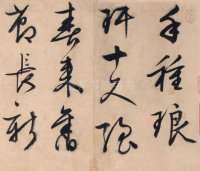 手種琅
玕十丈
春來舊
節長新